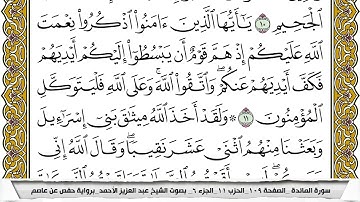 ٱلْجَحِيمِ ١٠ يَٰٓأَيُّهَا ٱلَّذِينَ ءَامَنُوا۟ ٱذْكُرُوا۟ نِعْمَتَ
ٱللَّهِ عَلَيْكُمْ إِذْ هَمَّ قَوْمٌ أَن يَبْسُطُوٓا۟ إِلَيْكُمْ أَيْدِيَهُمْ
فَكَفَّ أَيْدِيَهُمْ عَنكُمْ ۖ وَٱتَّقُوا۟ ٱللَّهَ ۚ وَعَلَى ٱللَّهِ فَلْيَتَوَكَّلِ
ٱلْمُؤْمِنُونَ ١١ ۞ وَلَقَدْ أَخَذَ ٱللَّهُ مِيثَٰقَ بَنِىٓ إِسْرَٰٓءِيلَ
وَبَعَثْنَا مِنْهُمُ ٱثْنَىْ عَشَرَ نَقِيبًا ۖ وَقَالَ ٱللَّهُ إِنِّى
سورة المائدة _ الصفحة ١٠٩_ الحزب ١١_ الجزء ٦_ بصوت الشيخ عبد العزيز الأحمد_ برواية حفص عن عاصم